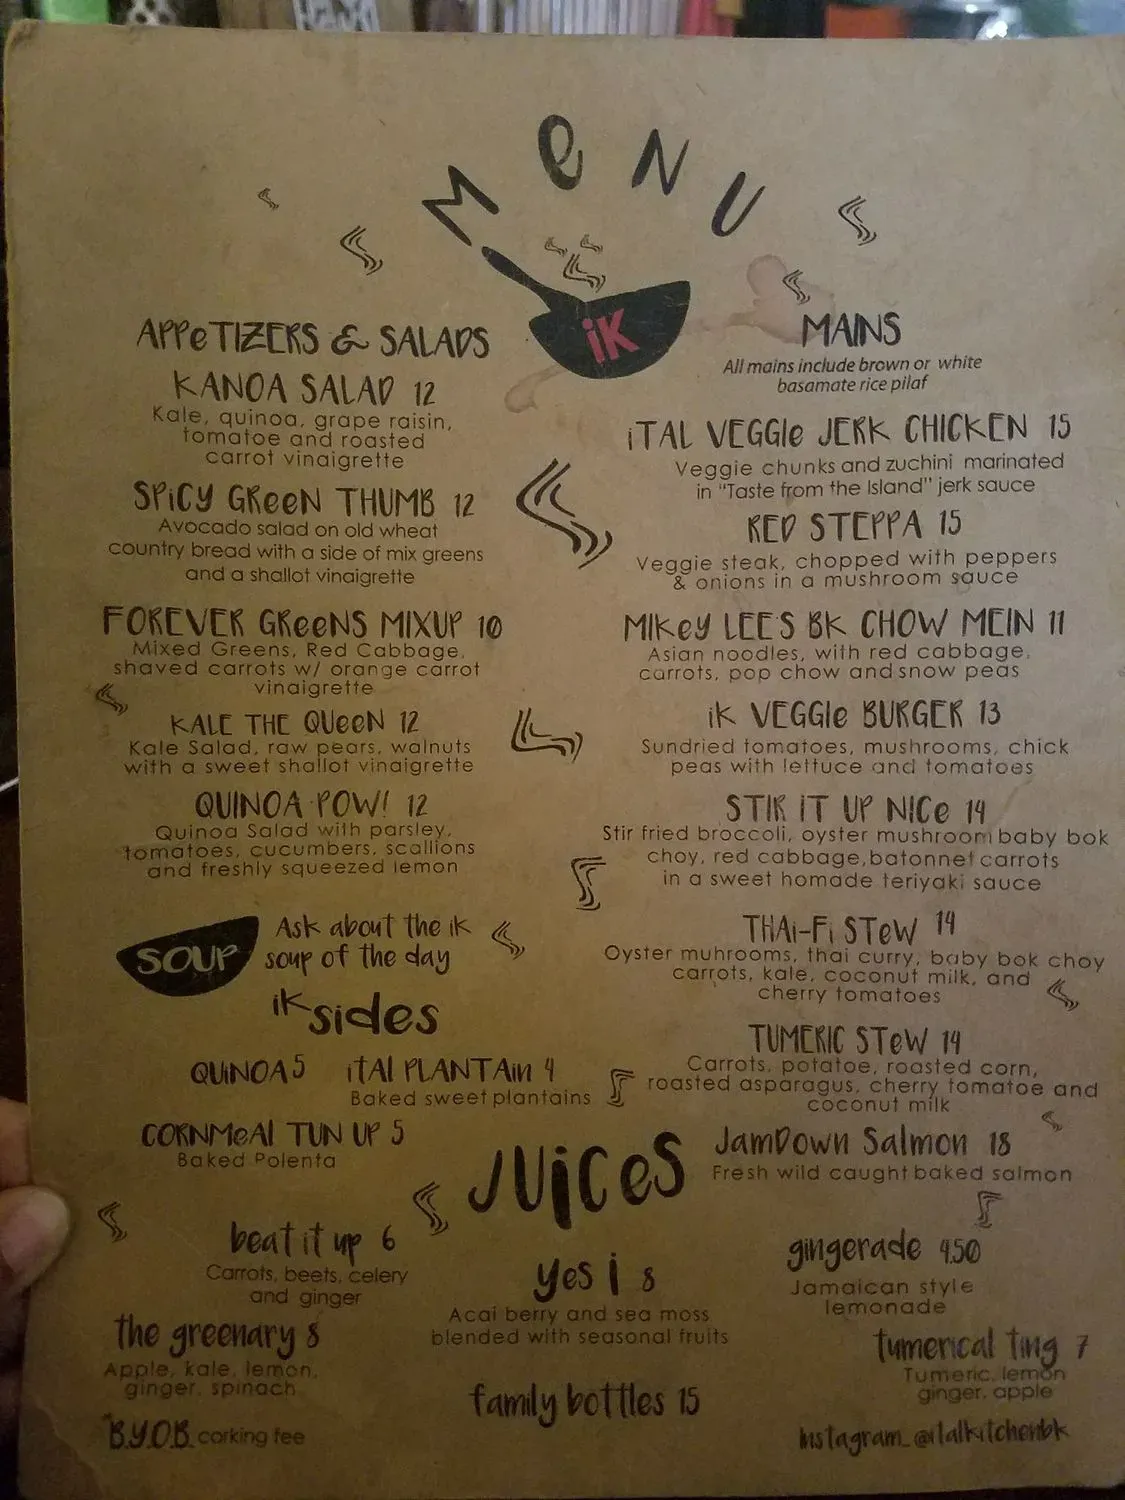 MeNU
iK
APPeTIZERS & SALADS
KANOA SALAD 12
Kale, quinoa, grape raisin,
tomatoe and roasted
carrot vinaigrette
SPiCY GReeN THUMB 12
Avocado salad on old wheat
country bread with a side of mix greens
and a shallot vinaigrette
FOREVER GReeNS MIXUP 10
Mixed Greens, Red Cabbage,
shaved carrots w/ orange carrot
vinaigrette
KALE THE QUeeN 12
Kale Salad, raw pears, walnuts
with a sweet shallot vinaigrette
QUINOA POW! 12
Quinoa Salad with parsley,
tomatoes, cucumbers, scallions
and freshly squeezed lemon
SOUP
Ask about the iK
soup of the day
iK sides
QUiNOA 5
iTAl PLANTAin 4
Baked sweet plantains
CORNMeAl TUN UP 5
Baked Polenta
MAINS
All mains include brown or white
basamate rice pilaf
iTAL VEGGIe JERK CHICKEN 15
Veggie chunks and zuchini marinated
in "Taste from the Island" jerk sauce
RED STEPPA 15
Veggie steak, chopped with peppers
& onions in a mushroom sauce
MIKey LEES BK CHOW MEIN 11
Asian noodles, with red cabbage,
carrots, pop chow and snow peas
iK VEGGIe BURGER 13
Sundried tomatoes, mushrooms, chick
peas with lettuce and tomatoes
STIR iT UP NICe 14
Stir fried broccoli, oyster mushroom baby bok
choy, red cabbage, batonnet carrots
in a sweet homade teriyaki sauce
THAi-Fi STeW 14
Oyster muhrooms, thai curry, baby bok choy
carrots, kale, coconut milk, and
cherry tomatoes
TUMERIC STeW 14
Carrots, potatoe, roasted corn,
roasted asparagus, cherry tomatoe and
coconut milk
JamDown Salmon 18
Fresh wild caught baked salmon
JUiCeS
beat it up 6
Carrots, beets, celery
and ginger
the greenary 8
Apple, kale, lemon,
ginger, spinach
B.Y.O.B. corking fee
yes i 8
Acai berry and sea moss
blended with seasonal fruits
family bottles 15
gingerade 4.50
Jamaican style
lemonade
tumerical ting 7
Tumeric, lemon
ginger, apple
Instagram_@italkitchenbk